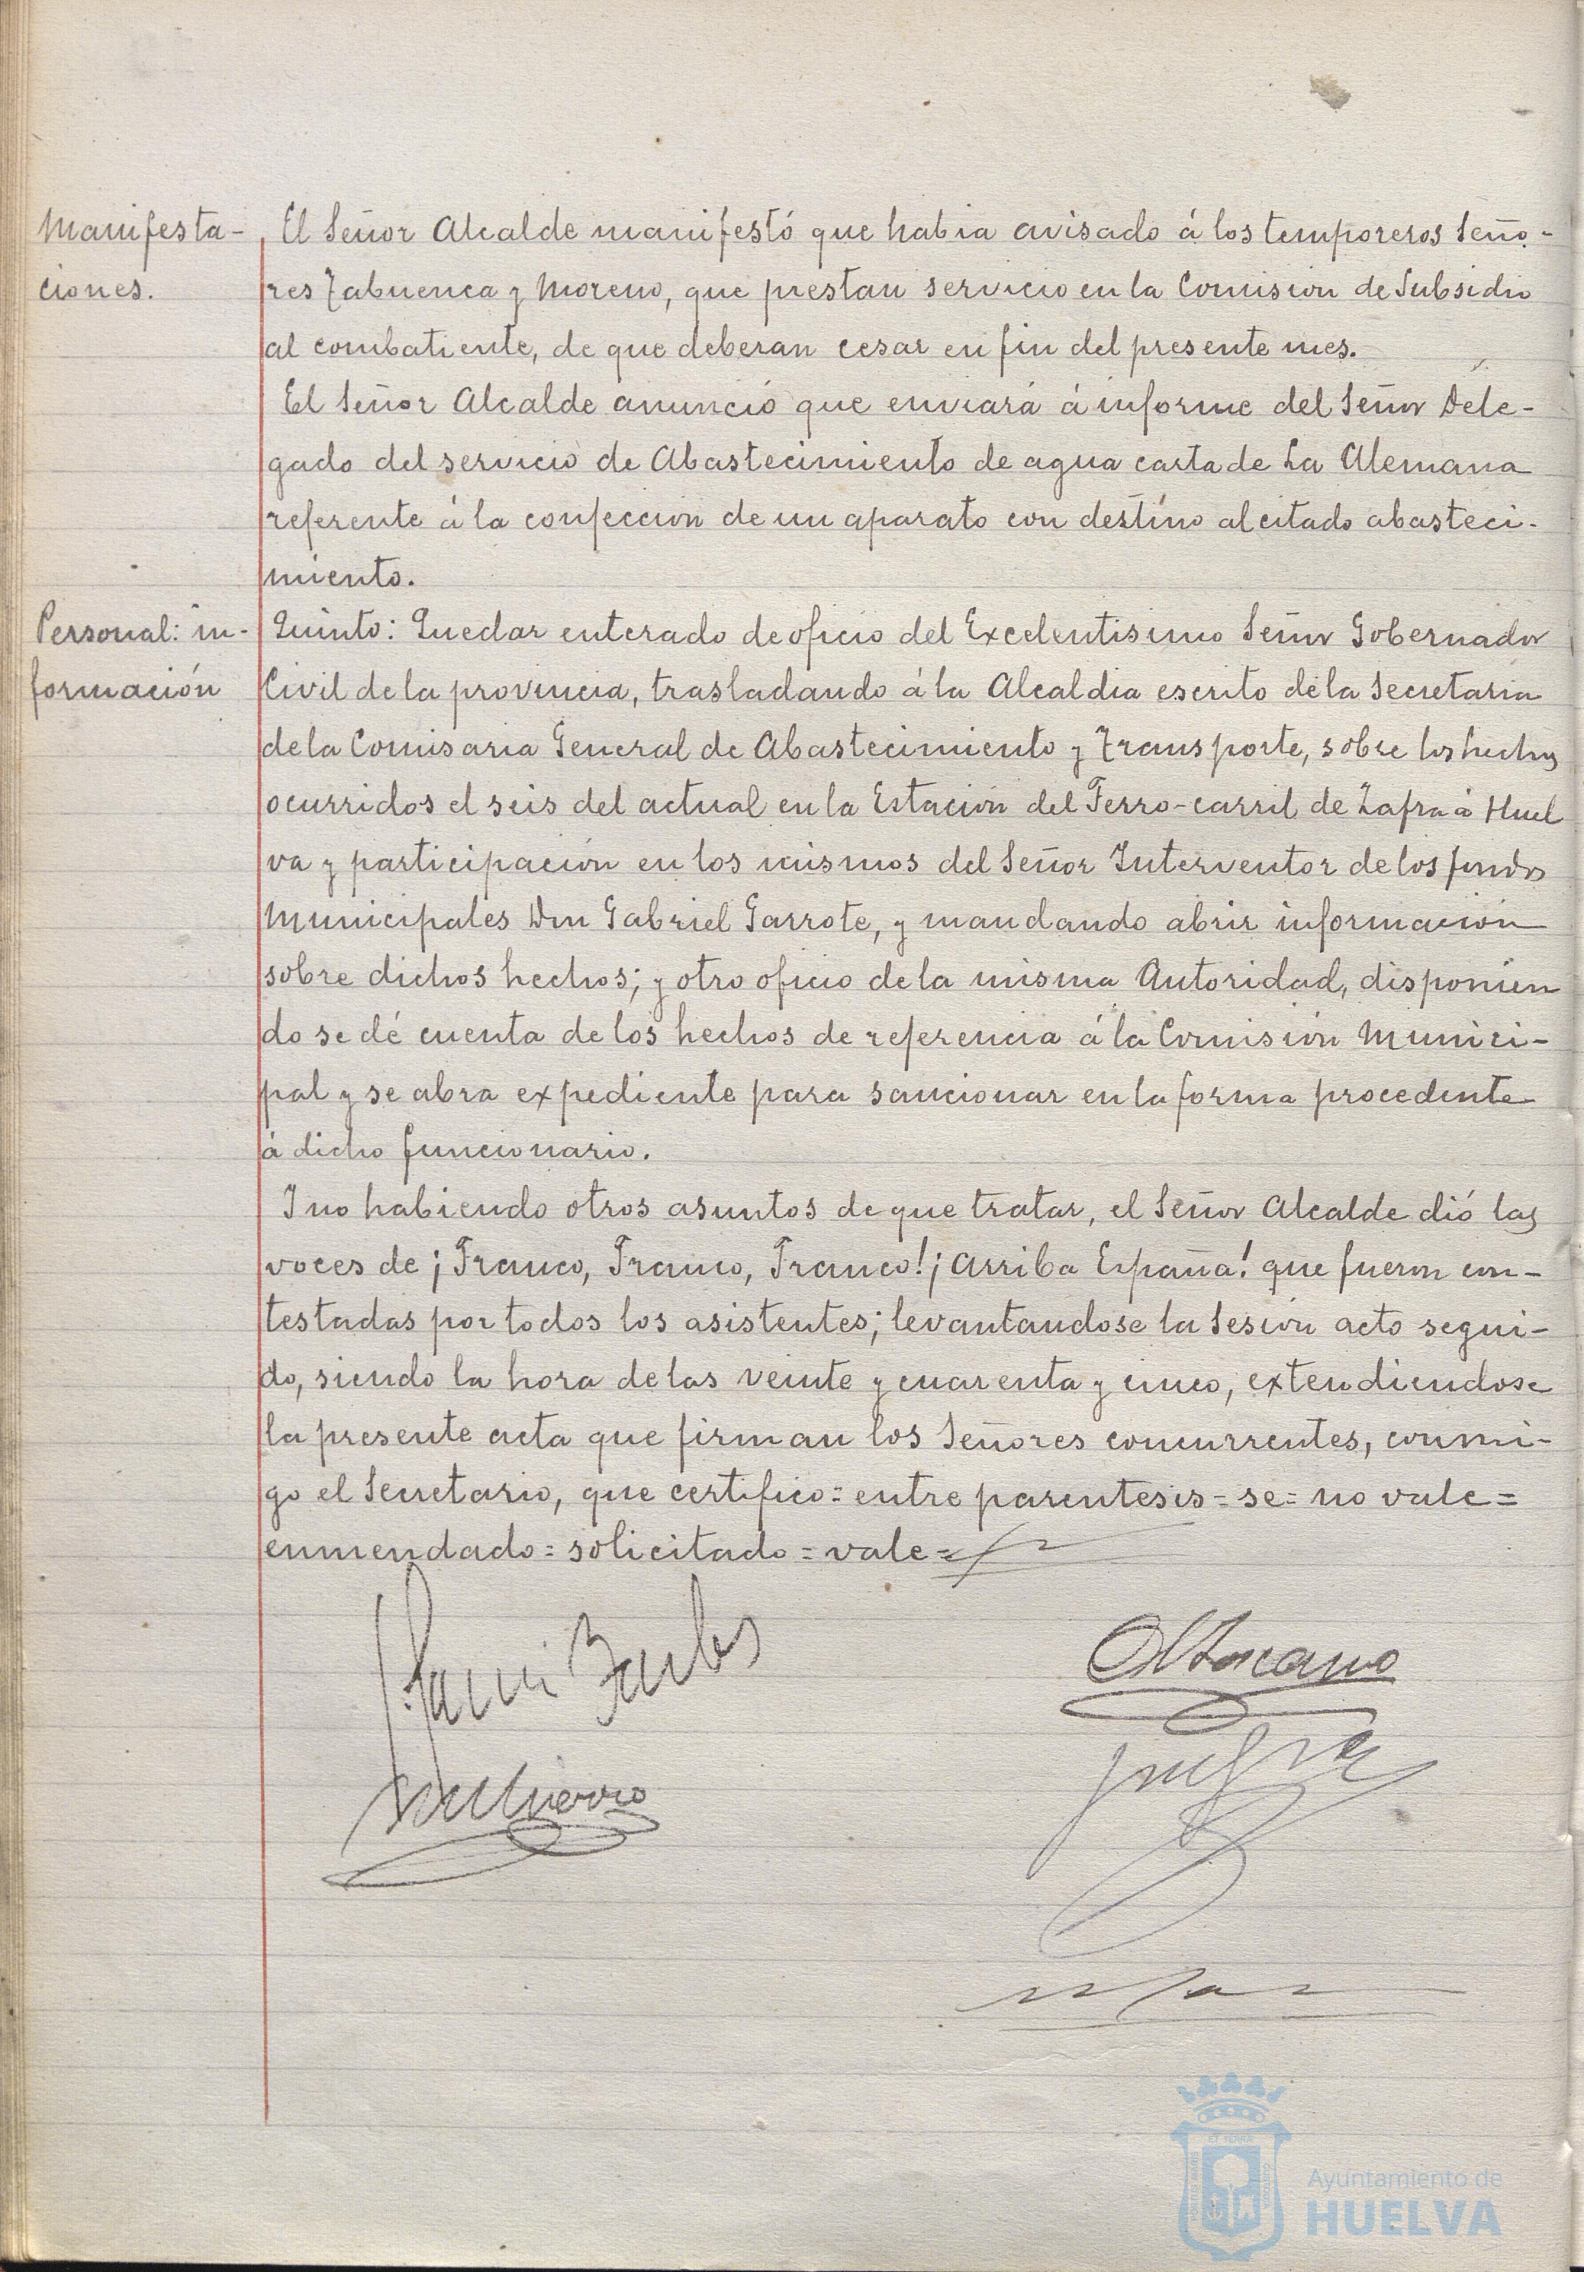 Manifesta-
ciones.
El Señor Alcalde manifestó que habia avisado á los temporeros Seño-
res Zabuenca y Moreno, que prestan servicio en la Comision de Subsidio
al combatiente, de que deberan cesar en fin del presente mes.
El Señor Alcalde anunció que enviará á informe del Señor Dele-
gado del servicio de Abastecimiento de agua carta de La Alemana
referente á la confección de un aparato con destino al citado abasteci-
miento.
Personal: in-
formación
Quinto: Quedar enterado de oficio del Excelentisimo Señor Gobernador
Civil de la provincia, trasladando á la Alcaldia escrito de la Secretaria
de la Comisaria General de Abastecimiento y Transporte, sobre los hechos
ocurridos el seis del actual en la Estación del Ferro-carril de Zafra á Huel
va y participación en los mismos del Señor Interventor de los fondos
Municipales Don Gabriel Garrote, y mandando abrir información
sobre dichos hechos; y otro oficio de la misma Autoridad, disponien
do se dé cuenta de los hechos de referencia á la Comisión Munici-
pal y se abra expediente para sancionar en la forma procedente
á dicho funcionario.
Y no habiendo otros asuntos de que tratar, el Señor Alcalde dió las
voces de ¡Franco, Franco, Franco! ¡Arriba España! que fueron con-
testadas por todos los asistentes; levantandose la Sesión acto segui-
do, siendo la hora de las veinte y cuarenta y cinco, extendiendose
la presente acta que firman los Señores concurrentes, conmi-
go el Secretario, que certifico = entre parentesis = se = no vale =
enmendado = solicitado = vale =
Ayuntamiento de
HUELVA